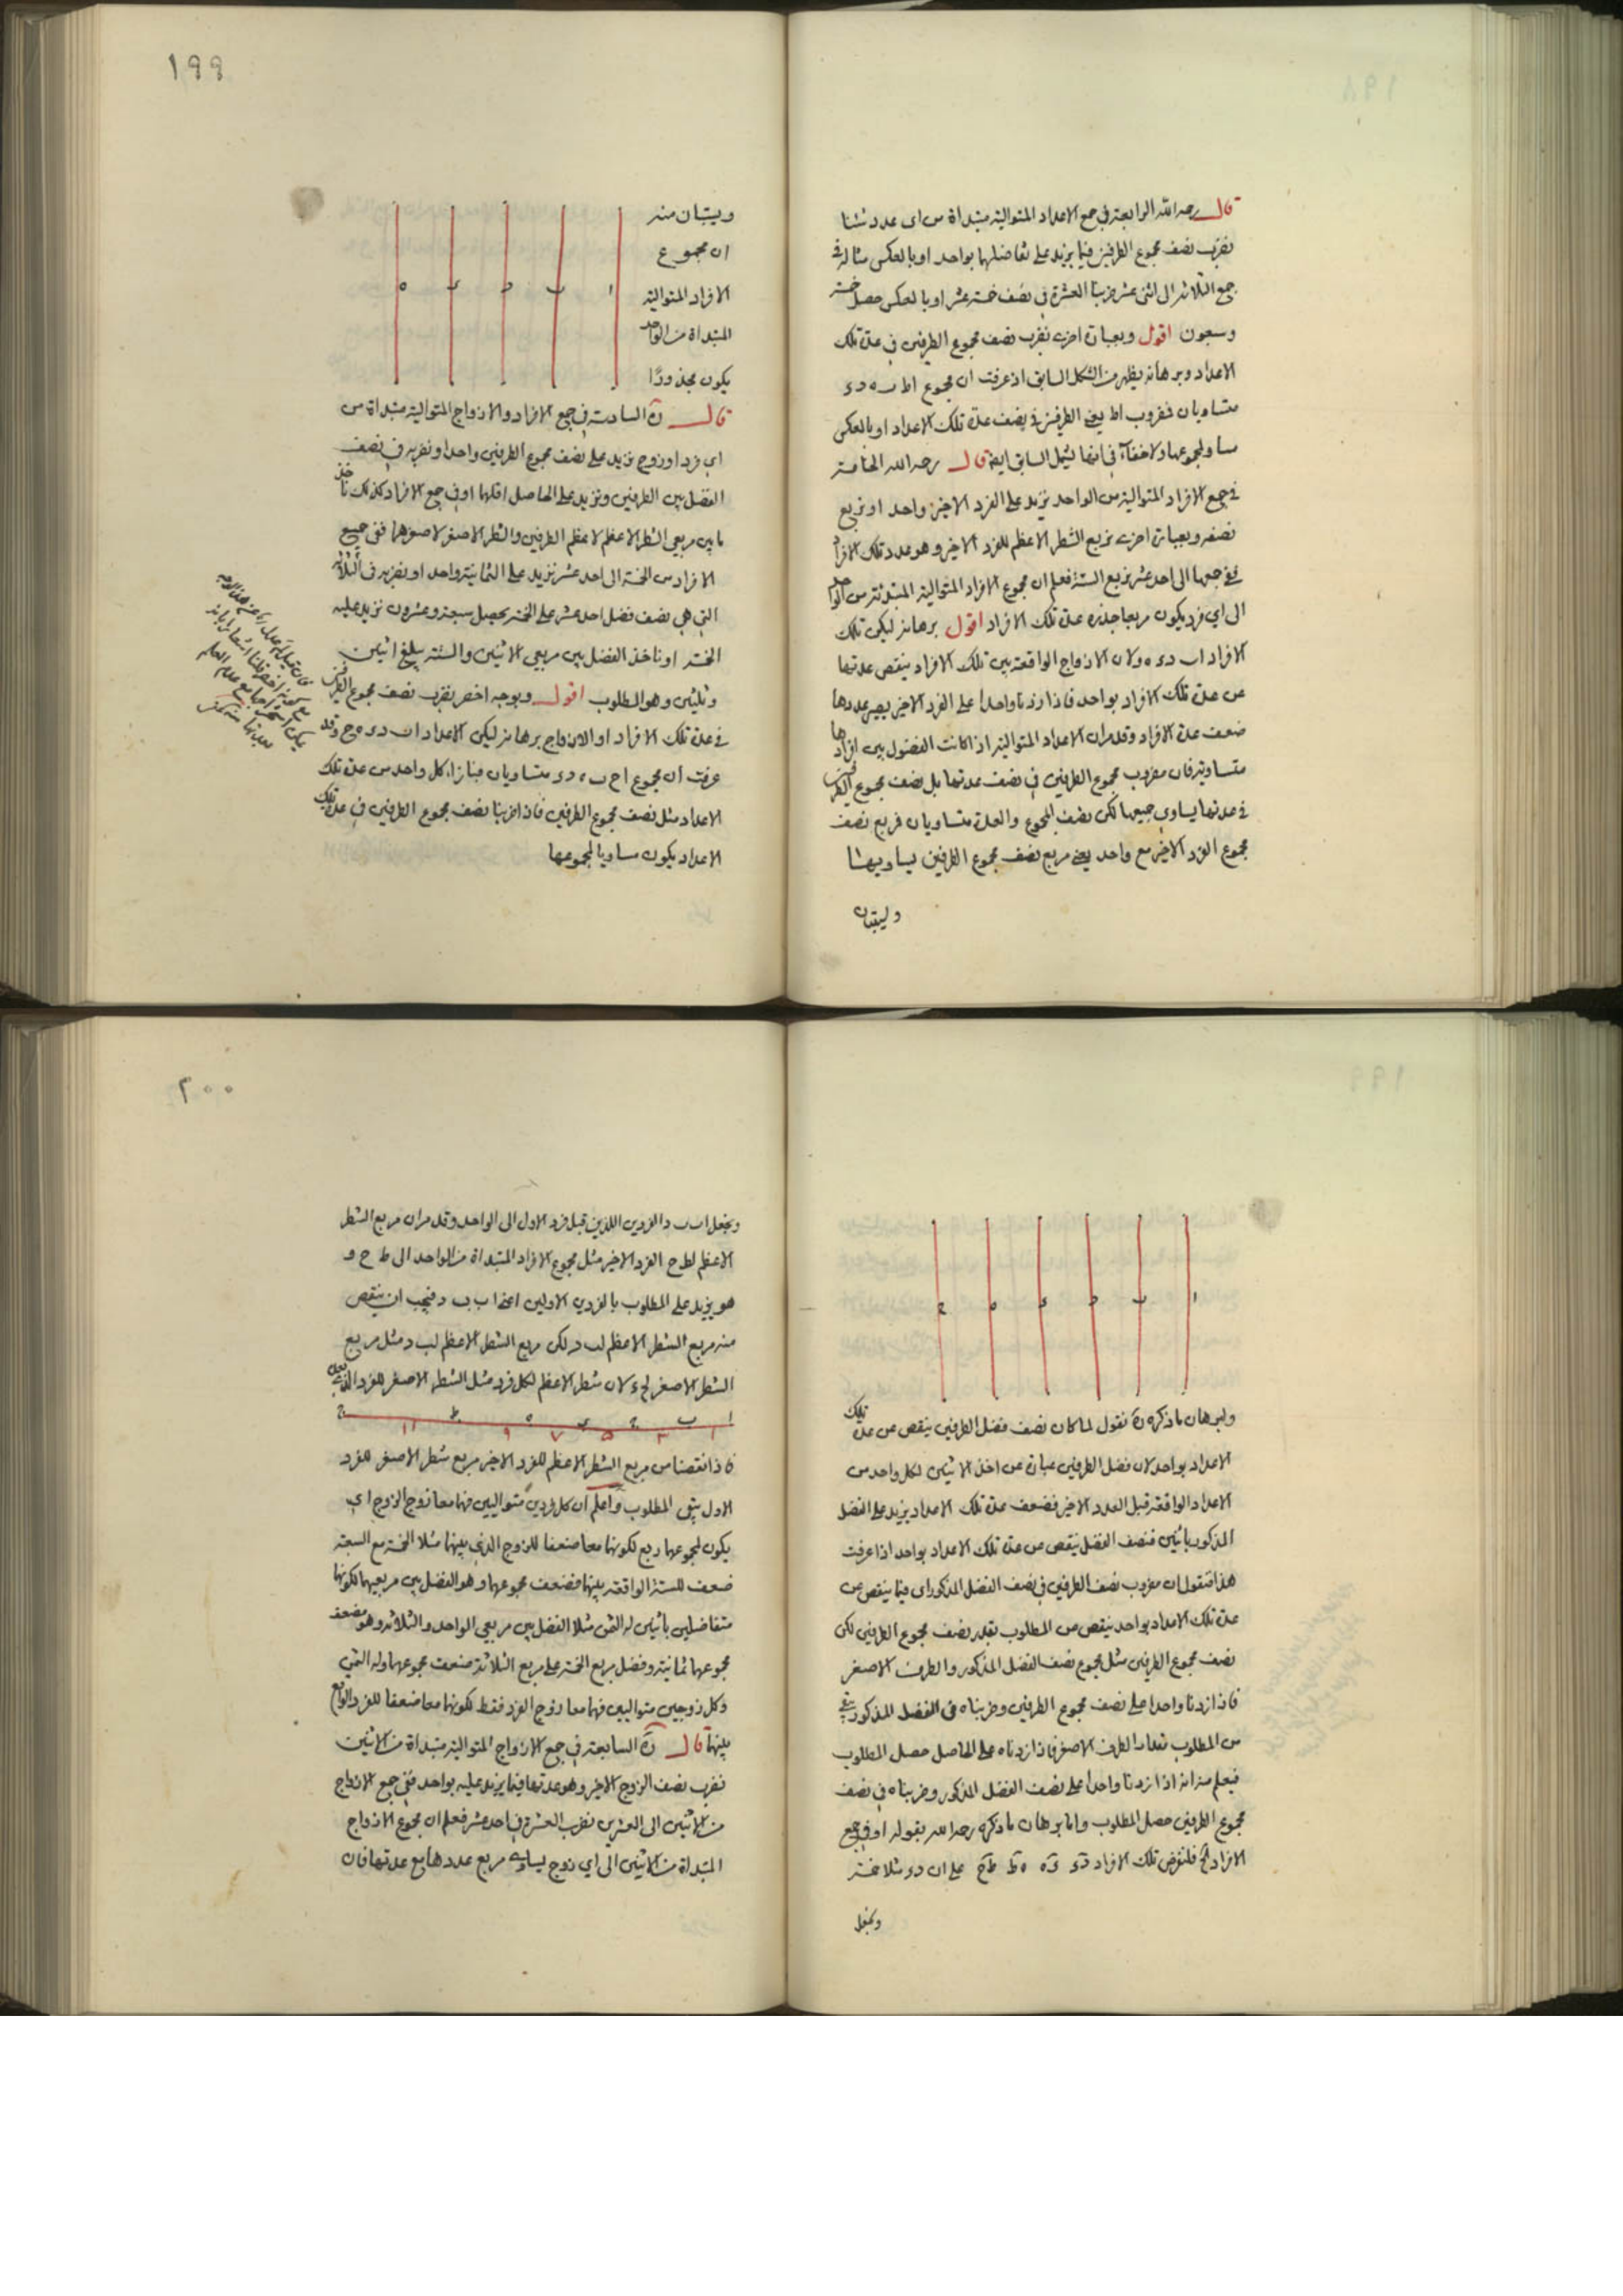 قال رحمه الله الرابعة في جمع الاعداد المتوالية مبتداة من اى عدد شئنا
نضرب نصف مجموع الطرفين فيما يزيد على تفاضلهما بواحد او بالعكس مثاله في
جمع الثلاثة الى اثنى عشر ضربنا العشرة في نصف خمسة عشر او بالعكس حصل خمسة
وسبعون اقول وبعبارة اخرى نضرب نصف مجموع الطرفين في عدة تلك
الاعداد وبرهانه يظهر من الشكل السابق اذ عرفت ان مجموع اط ب ه د ء
متساويان فضروب اط يعنى الطرفين في نصف عدة تلك الاعداد او بالعكس
مساو لمجموعها ولا خفآء في انها يشمل السابق ايضا قال رحمه الله الخامسة
في جمع الافراد المتوالية من الواحد نزيد على الفرد الاخير واحد او نربع
نصفه وبعبارة اخرى نربع الشطر الاعظم للفرد الاخير وهو عدد تلك الافراد
ففي جمعها الى احد عشر نربع الستة فعلم ان مجموع الافراد المتوالية المبتدئة من الواحد
الى اي فرد يكون مربعا جذره عدة تلك الافراد اقول برهانه ليكن تلك
الافراد ا ب د ء ه ولان الازواج الواقعة بين تلك الافراد ينقص عدتها
عن عدة تلك الافراد بواحد فاذا زدنا واحدا على الفرد الاخير يصير عددها
ضعف عدة الافراد وقد مر ان الاعداد المتوالية اذا كانت الفضول بين افرادها
متساوية فان مضروب مجموع الطرفين في نصف عدتها بل نصف مجموع الطرفين
في عدتها يساوي جميعها لكن نصف المجموع والعدة متساويان فربع نصف
مجموع الفرد الاخير مع واحد يعنى مربع نصف مجموع الطرفين يساويها
وليتبان
١٩٩
ويتبان منه
ان مجموع
الافراد المتوالية
المبتداة من الواحد
يكون مجذورًا
ا ب د ء ه
قال رة السادسة في جمع الافراد والازواج المتوالية مبتداة من
اي فرد او زوج نزيد على نصف مجموع الطرفين واحدا ونضربه في نصف
الفضل بين الطرفين ونزيد على الحاصل اقلهما او في جمع الافراد كذلك ناخذ
ما بين مربعي الشطر الاعظم لاعظم الطرفين والشطر الاصغر لاصغرهما ففي جميع
الافراد من الخمسة الى احد عشر نزيد على الثمانية واحد او نضربه في الثلاثة
التي هي نصف فضل احد عشر على الخمسة يحصل سبعة وعشرون نزيد عليه
الخمسة او ناخذ الفضل بين مربعي الاثنين والستة يبلغ اثنين
وثلثين وهو المطلوب اقول وبوجه اخصر نضرب نصف مجموع الطرفين
في عدة تلك الافراد او الازواج برهانه ليكن الاعداد ا ب د ء ه ح وقد
عرفت ان مجموع ا ح ب ه د ء متساويان فبازاء كل واحد من عدة تلك
الاعداد مثل نصف مجموع الطرفين فاذا ضربنا نصف مجموع الطرفين في عدة تلك
الاعداد يكون مساويا لمجموعها
ا ب د ء ه ح
ولبرهان ما ذكره رة نقول لما كان نصف فضل الطرفين ينقص عن عدة تلك
الاعداد بواحد لان فضل الطرفين عبارة عن اخذ الاثنين لكل واحد من
الاعداد الواقعة قبل العدد الاخير فضعف عدة تلك الاعداد يزيد على الفضل
المذكور باثنين فنصف الفضل ينقص عن عدة تلك الاعداد بواحد اذا عرفت
هذا فنقول ان مضروب نصف الطرفين في نصف الفضل المذكور اى فيما ينقص عن
عدة تلك الاعداد بواحد ينقص عن المطلوب بقدر نصف مجموع الطرفين لكن
نصف مجموع الطرفين مثل مجموع نصف الفضل المذكور والطرف الاصغر
فاذا زدنا واحدا على نصف مجموع الطرفين وضربناه في الفضل المذكور بقي
من المطلوب مقدار الطرف الاصغر فاذا زدناه على الحاصل حصل المطلوب
فيعلم منه انه اذا زدنا واحدا على نصف الفضل المذكور وضربناه في نصف
مجموع الطرفين حصل المطلوب واما برهان ما ذكره رحمه الله بقوله او في جمع
الافراد فلنفرض تلك الافراد د ء ء ه ه ط ط ح على ان د ء مثلا خمسة
ونجعل
٢٠٠
ونجعل ا ب ب د الفردين اللذين قبل فرد الاول الى الواحد وقد مر ان مربع الشطر
الاعظم لط ح الفرد الاخير مثل مجموع الافراد المبتداة من الواحد الى ط ح و
هو يزيد على المطلوب بالفردين الاولين اعنى ا ب ب د فيجب ان ينقص
منه مربع الشطر الاعظم لب د لكن مربع الشطر الاعظم لب د مثل مربع
الشطر الاصغر لح ء لان شطر الاعظم لكل فرد مثل الشطر الاصغر للفرد الذي يليه
ا ب ح ء ه ط ح
١ ٣ ٥ ٧ ٩ ١١
فاذا نقصنا من مربع الشطر الاعظم للفرد الاخير مربع شطر الاصغر للفرد
الاول بقى المطلوب واعلم ان كل فردين متواليين فهما معا زوج الزوج اي
يكون لمجموعهما ربع لكونهما معا ضعفا للزوج الذي بينهما مثلا الخمسة مع السبعة
ضعف للستة الواقعة بينهما فضعف مجموعهما وهو الفضل بين مربعيهما لكونهما
متفاضلين باثنين له الثمن مثلا الفضل بين مربعي الواحد والثلاثة وهو ضعف
مجموعهما ثمانية وفضل مربع الخمسة على مربع الثلاثة ضعف مجموعهما وله الثمن
وكل زوجين متواليين فهما معا زوج الفرد فقط لكونهما معا ضعفا للفرد الواقع
بينهما قال رة السابعة في جمع الازواج المتوالية مبتداة من الاثنين
نضرب نصف الزوج الاخير وهو عدتها فيما يزيد عليه بواحد ففي جمع الازواج
من الاثنين الى العشرين نضرب العشرة في احد عشر فعلم ان مجموع الازواج
المبتداة من الاثنين الى اي زوج يساوي مربع عددها مع عدتها فان